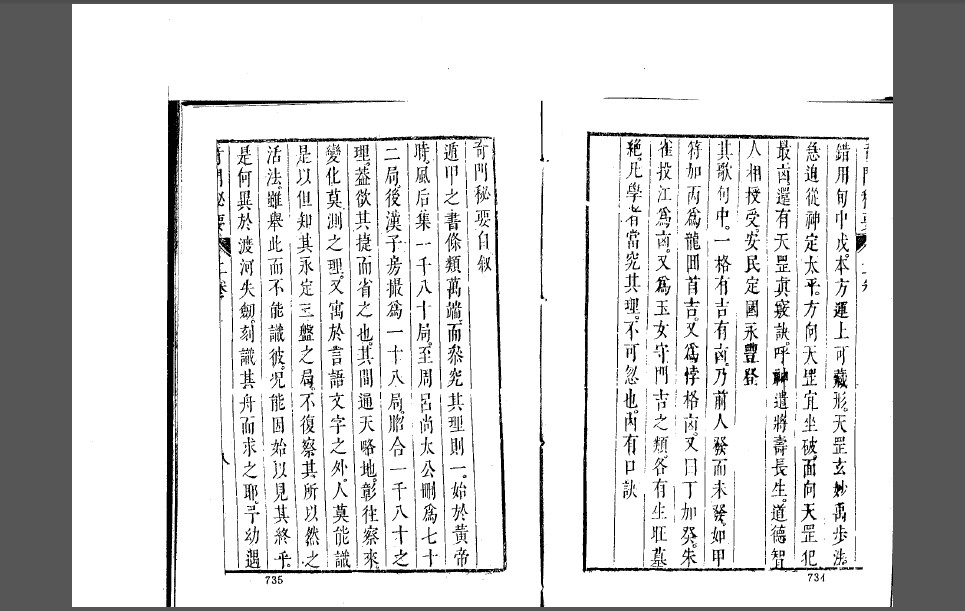 錯用旬中戊。本方運上可藏形。天罡玄妙禹步法。
急迫從神定太平。方向天罡宜坐破。面向天罡犯
最凶。還有天罡眞竅訣。呼神遣將壽長生。道德智
人相授受。安民定國永豐登
其歌句中。一格有吉有凶。乃前人發而未發。如甲
符加丙爲龍囬首吉。又爲悖格凶。又曰丁加癸。朱
雀投江爲凶。又爲玉女守門吉之類。各有生旺墓
絶。凡學者當究其理。不可忽也。丙有口訣
734
奇門秘要自叙
遁甲之書條類萬端。而叅究其理則一。始於黄帝
時。風后集一千八十局。至周呂尚太公刪爲七十
二局。後漢子房撮爲一十八局。脗合一千八十之
理。葢欲其捷而省之也。其間通天略地。彰往察來。
變化莫測之理。又寓於言語文字之外。人莫能識
是以但知其永定三盤之局。不復察其所以然之
活法。雖舉此而不能識彼。况能因始以見其終乎。
是何異於渡河失劒。刻識其舟而求之耶。予幼遇
奇門秘要 上卷 八
735